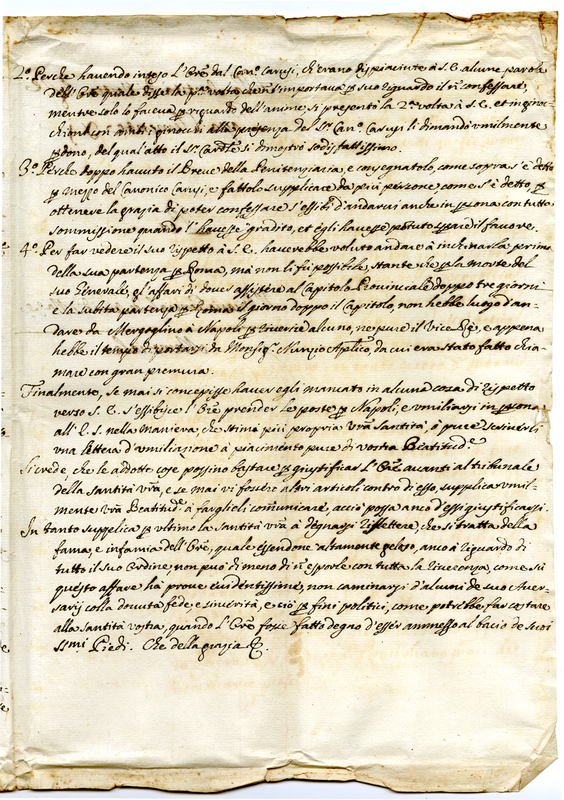 2.º Perche havendo inteso l'Ore dal Can.co Carusi, ch'erano dispiaciute à S. E. alcune parole
dell'Ore quale disse la pa volta che n̄ importava ꝑ suo riguardo il n̄ confessare,
mentre solo lo faceva ꝑ riguardo dell'anime, si presentò la 2.a volta à S. E. et inginoc
chiato con ambi i ginocchi alla presenza del Sr Can.co Carusi li dimandò umilmente
ꝑdono, del qual'atto il Sr Cardle si dimostrò sodisfattissimo.
3.º Perche doppo havuto il Breve della Penitenziaria, e consegnatolo, come sopra s'è detto
ꝑ mezzo del Canonico Carusi, e fattolo supplicare da più persone come s'è detto, ꝑ
ottenere la grazia di poter confessare s'essibì d'andarvi anche in ꝑsona con tutta
sommissione quando l'havesse gradito, et egli havesse potuto sperare il favore.
4.º Per far vedere il suo rispetto à S. E. haverebbe voluto andare à inchinarla prima
della sua partenza ꝑ Roma, mà non li fù possibile, stante che ꝑ la morte del
suo Generale, gl'affari di dover assistere al Capitolo Provinciale doppo tre giorni
e la subita partenza ꝑ Roma il giorno doppo il Capitolo, non hebbe luogo d'an
dare da Mergoglino à Napoli ꝑ riverire alcuno, ne pure il Vice Rè, e appena
hebbe il tempo di portarsi da Monsigr Nunzio Aplico, da cui era stato fatto chia
mare con gran premura.
Finalmente, se mai si concepisse haver egli mancato in alcuna cosa di rispetto
verso S. E. s'essibisce l'Ore prender le poste ꝑ Napoli, e umiliarsi in ꝑsona
all'E. S. nella maniera, che stima più propria Vr̄a Santità, ò pure scriverli
una lettera d'umiliazione à piacimento pure di Vostra Beatitude
Si crede, che le addotte cose possino bastare ꝑ giustificar l'Ore avanti al tribunale
della Santità Vr̄a, e se mai vi fossero altri articoli contro di esso, supplica umil-
mente Vr̄a Beatitude à farglieli com̄unicare, acciò possa anco d'essi giustificarsi.
In tanto supplica ꝑ ultimo la Santità Vr̄a à degnarsi riflettere, che si tratta della
fama, e infamia dell'Ore, quale essendone altamente geloso, anco à riguardo di
tutto il suo Ordine, non può di meno di n̄ esporle con tutta la riverenza, come sù
questo affare hà prove evidentissime, non caminarsi d'alcuni de suoi Aver-
sarij colla dovuta fede, e sincerità, e ciò ꝑ fini politici, come potrebbe far costare
alla Santità Vostra, quando l'Ore fosse fatto degno d'esser ammesso al bacio de suoi
SSmi Piedi. Che della grazia &.